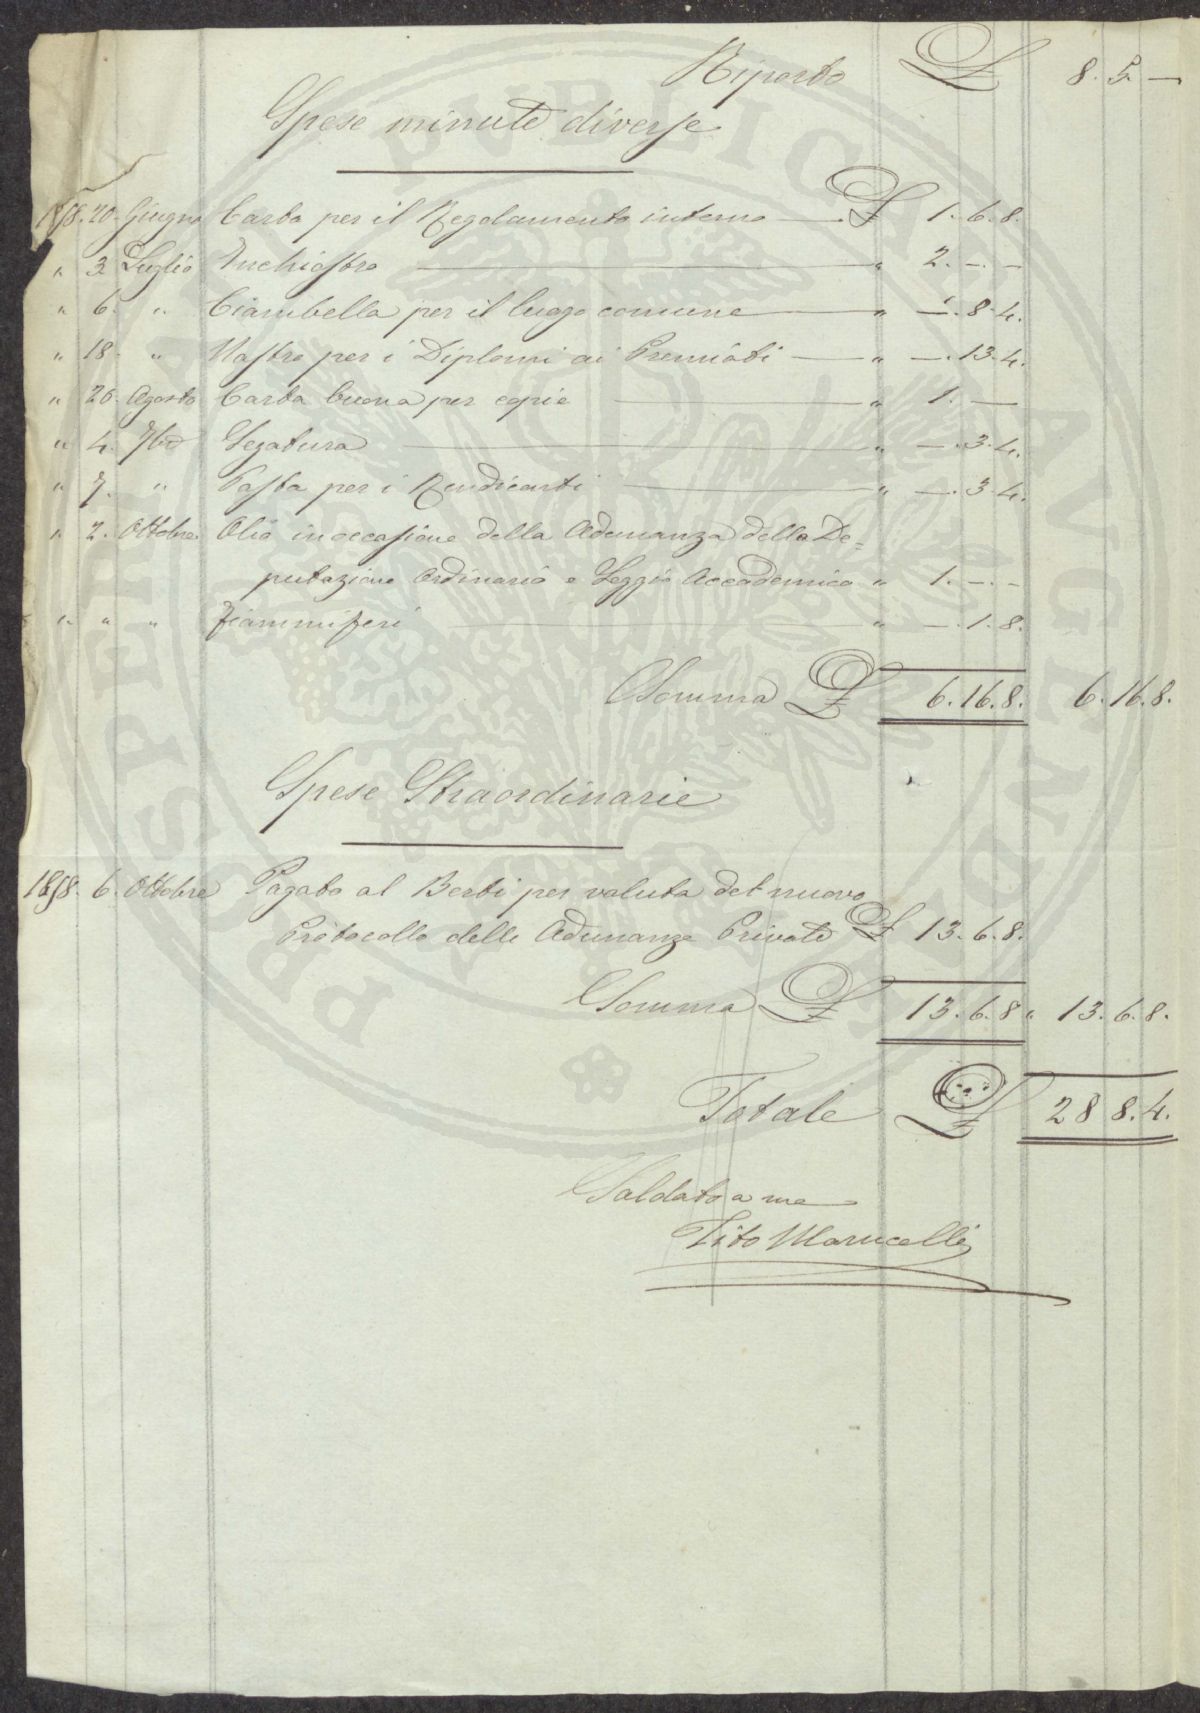 Riporto £ 8. 5. —
Spese minute diverse
1858. 20. Giugno Carta per il Regolamento interno — £ 1. 6. 8.
" 3. Luglio Inchiostro — " 2. —. —
" 6. " Ciambella per il luogo comune — " —. 8. 4.
" 18. " Nastro per i Diplomi ai Premiati — " —. 13. 4.
" 26. Agosto Carta buona per copie — " 1. —
" 4. 7bre Legatura — " —. 3. 4.
" 7. " Pasta per i Rendiconti — " —. 3. 4.
" 2. Ottobre Olio in occasione della Adunanza della De=
putazione Ordinaria e Seggio Accademico " 1. —. —
" " " Fiammiferi — " —. 1. 8.
Somma £ 6. 16. 8. 6. 16. 8.
Spese Straordinarie
1858. 6. Ottobre Pagato al Berti per valuta del nuovo
Protocollo delle Adunanze Private £ 13. 6. 8.
Somma £ 13. 6. 8 " 13. 6. 8.
Totale £ 28 8. 4.
Saldato a me
Tito Marucelli
PROSPERITATI PUBLICAE AUGENDAE